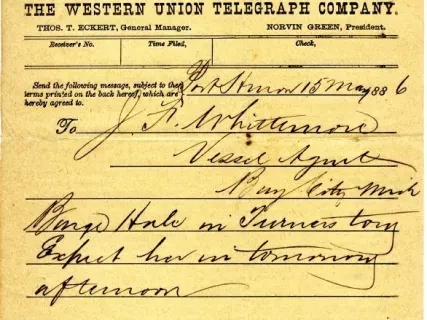 THE WESTERN UNION TELEGRAPH COMPANY.
THOS. T. ECKERT, General Manager. NORVIN GREEN, President.
Receiver's No. Time Filed, Check,
Send the following message, subject to the
terms printed on the back hereof, which are
hereby agreed to.
Port Huron 15 May 1886
To J. F. Whittemore
Vessel Agent
Bay City Mich
Barge Hale in Turners tow
Expect her in tomorrow
afternoon